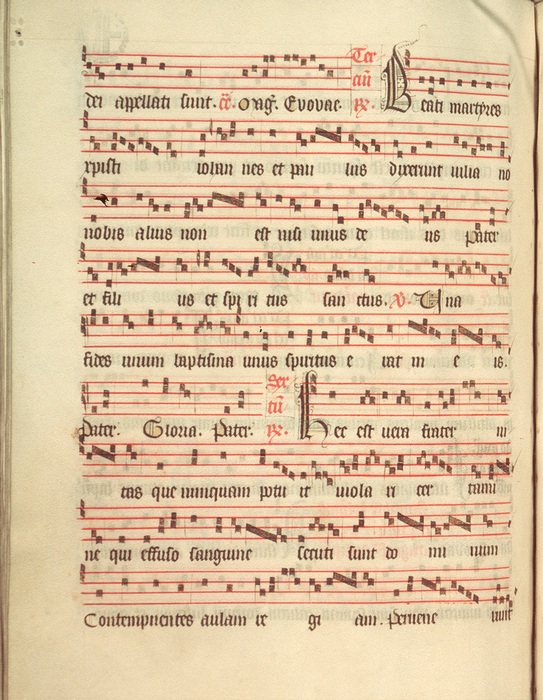 Ter
dei appellati sunt. ciū Evovae. R. Beati martyres
xpisti iohan nes et pau lus dixerunt iulia no
nobis alius non est nisi unus de us Pater
et fili us et spi ri tus san ctus. V. Una
fides unum baptisma unus spiritus e rat in e is.
Ser
tū
Pater. Gloria. Pater. R. Hec est vera frater ni
tas que nunquam potu it viola ri cer tami
ne qui effuso sanguine secuti sunt do mi num
Contempnentes aulam re gi am. Pervene runt